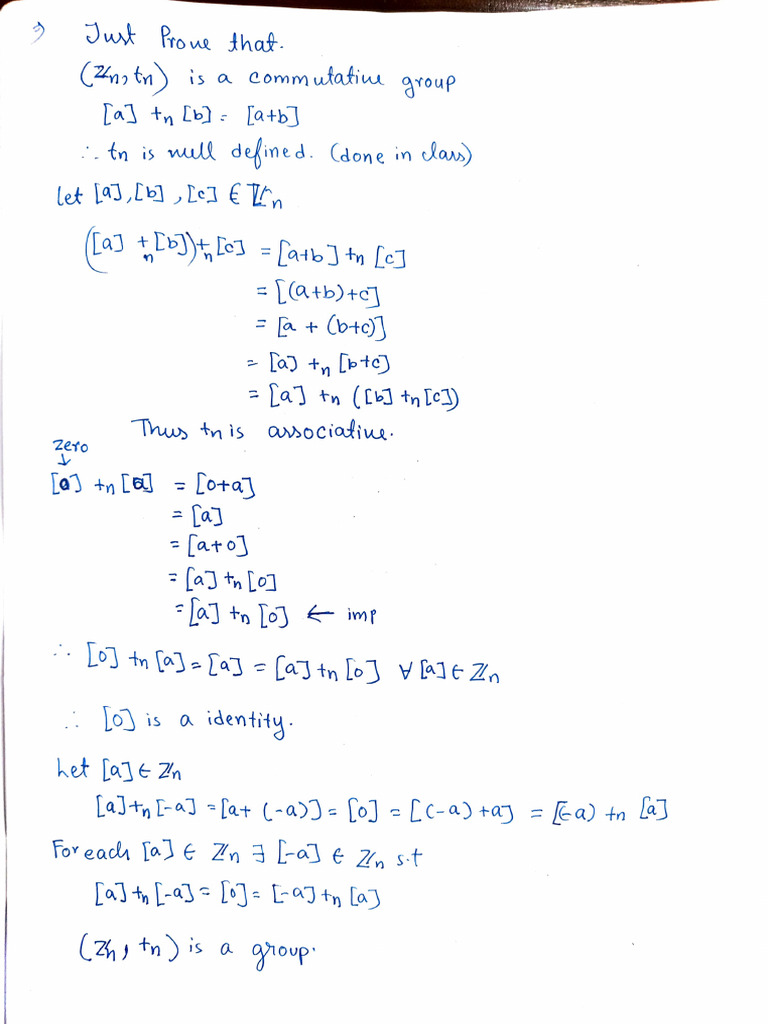 Just Prove that.
(ℤn, +n) is a commutative group
[a] +n [b] = [a+b]
∴ +n is well defined. (done in class)
let [a], [b], [c] ∈ ℤn
([a] +n [b]) +n [c] = [a+b] +n [c]
= [(a+b)+c]
= [a + (b+c)]
= [a] +n [b+c]
= [a] +n ([b] +n [c])
Thus +n is associative.
zero
↓
[0] +n [a] = [0+a]
= [a]
= [a+0]
= [a] +n [0]
= [a] +n [0] ← imp
∴ [0] +n [a] = [a] = [a] +n [0] ∀ [a] ∈ ℤn
∴ [0] is a identity.
Let [a] ∈ ℤn
[a] +n [-a] = [a + (-a)] = [0] = [(-a) + a] = [-a) +n [a]
For each [a] ∈ ℤn ∃ [-a] ∈ ℤn s.t
[a] +n [-a] = [0] = [-a] +n [a]
(ℤn, +n) is a group.